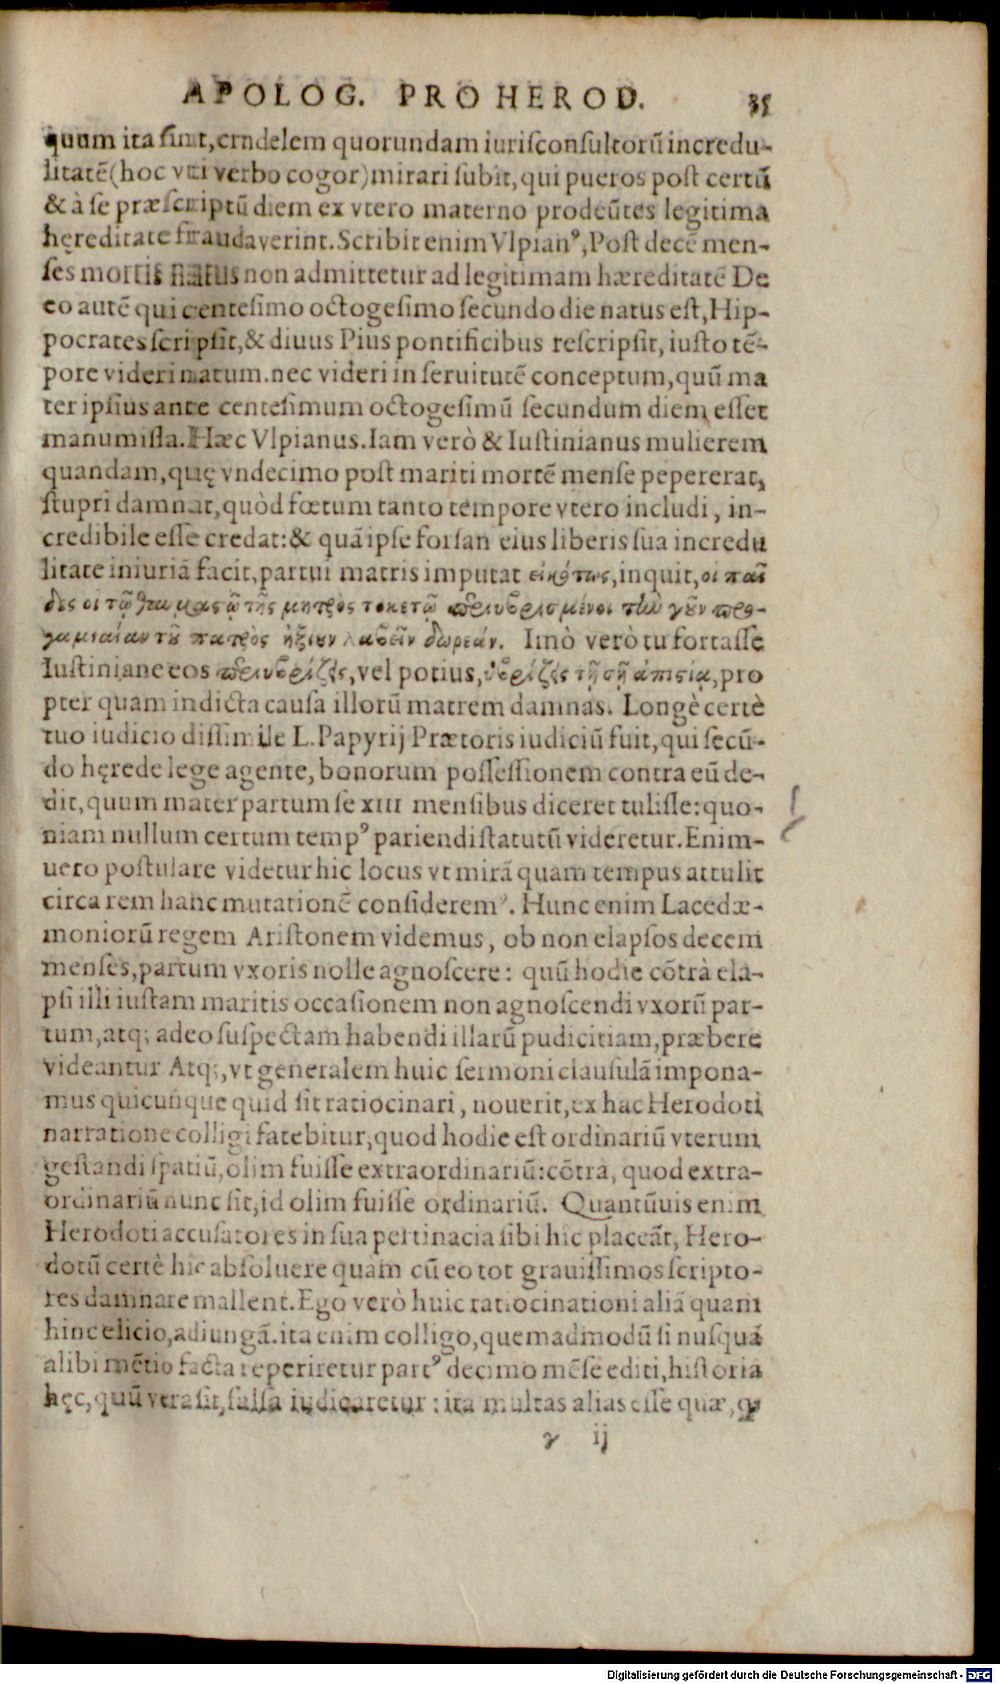 APOLOG. PRO HEROD. 35
quum ita sint, crudelem quorundam iurisconsultorū incredu-
litatē (hoc vti verbo cogor) mirari subit, qui pueros post certū
& à se præscriptū diem ex vtero materno prodeūtes legitima
hęreditate fraudaverint. Scribit enim Vlpianꝰ, Post decē men-
ses mortis natus non admittetur ad legitimam hæreditatē De
eo autē qui centesimo octogesimo secundo die natus est, Hip-
pocrates scripsit, & diuus Pius pontificibus rescripsit, iusto tē-
pore videri natum. nec videri in seruitutē conceptum, quū ma
ter ipsius ante centesimum octogesimū secundum diem esset
manumissa. Hæc Vlpianus. Iam verò & Iustinianus mulierem
quandam, quę vndecimo post mariti mortē mense pepererat,
stupri damnat, quòd fœtum tanto tempore vtero includi, in-
credibile esse credat: & quā ipse forsan eius liberis sua incredu
litate iniuriā facit, partui matris imputat εἰκότως, inquit, οι παῖ
δες οι τῷ
τῆς μητρὸς τοκετῷ περιυβρισμένοι τὴν γοῦν προ-
γαμιαίαν τοῦ πατρὸς ἠξίουν λαβεῖν δωρεάν. Imò verò tu fortasse
Iustiniane eos περιυβρίζεις, vel potius, ὑβρίζεις τῇ σῇ ἀπιστίᾳ, pro
pter quam indicta causa illorū matrem damnas. Longè certè
tuo iudicio dissimile L. Papyrij Prætoris iudiciū fuit, qui secū-
do hęrede lege agente, bonorum possessionem contra eū de-
dit, quum mater partum se XIII mensibus diceret tulisse: quo-
niam nullum certum tempꝰ pariendi statutū videretur. Enim-
uero postulare videtur hic locus vt mirā quam tempus attulit
circa rem hanc mutationē consideremꝰ. Hunc enim Lacedæ-
moniorū regem Aristonem videmus, ob non elapsos decem
menses, partum vxoris nolle agnoscere: quū hodie cōtrà ela-
psi illi iustam maritis occasionem non agnoscendi vxorū par-
tum, atq; adeo suspectam habendi illarū pudicitiam, præbere
videantur Atq;, vt generalem huic sermoni clausulā impona-
mus quicunque quid sit ratiocinari, nouerit, ex hac Herodoti
narratione colligi fatebitur, quod hodie est ordinariū vterum
gestandi spatiū, olim fuisse extraordinariū: cōtrà, quod extra-
ordinariū nunc sit, id olim fuisse ordinariū. Quantūuis enim
Herodoti accusatores in sua pertinacia sibi hic placeāt, Hero-
dotū certè hic absoluere quàm cū eo tot grauissimos scripto-
res damnare mallent. Ego verò huic ratiocinationi aliā quam
hinc elicio, adiungā. ita enim colligo, quemadmodū si nusquā
alibi mētio facta reperiretur partꝰ decimo mēse editi, historia
hęc, quū vera sit, falsa iudicaretur: ita multas alias esse quæ, ꝙ
γ ij
Digitalisierung gefördert durch die Deutsche Forschungsgemeinschaft - DFG